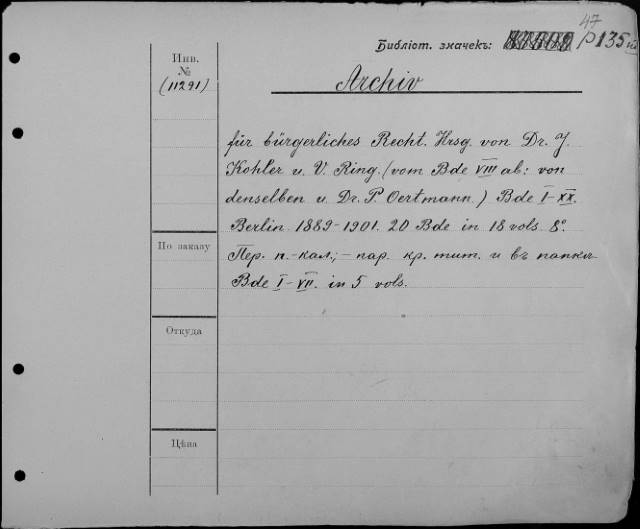 47
Библіот. значекъ: P135
Инв.
№
(11291)
Archiv
für bürgerliches Recht. Hrsg. von Dr. J.
Kohler u. V. Ring. (vom Bde VIII ab: von
denselben u. Dr. P. Oertmann.) Bde I-XX.
Berlin. 1889-1901. 20 Bde in 18 vols. 8°.
По заказу
Пер. п.-кал.; - пар. кр. тит. и въ папкѣ
Bde I-VII. in 5 vols.
Откуда
Цѣна